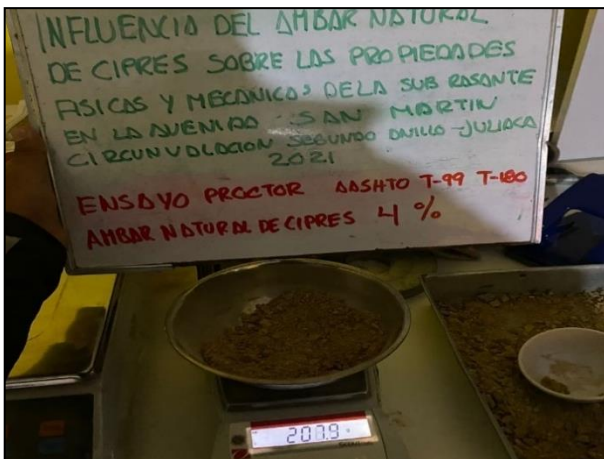 INFLUENCIA DEL AMBAR NATURAL
DE CIPRES SOBRE LAS PROPIEDADES
FISICAS Y MECANICAS DE LA SUB RASANTE
EN LA AVENIDA SAN MARTIN
CIRCUNVALACION SEGUNDO ANILLO - JULIACA
2021
ENSAYO PROCTOR AASHTO T-99 T-180
AMBAR NATURAL DE CIPRES 4 %
207.9